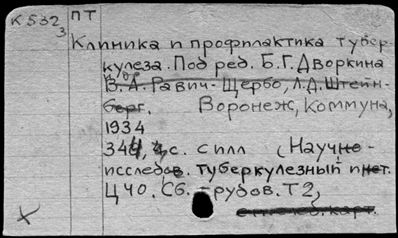 К 532 ПТ
3
Клиника и профилактика тубер
кулеза. Под ред. Б.Г. Дворкина
и др
В.А. Равич-Щербо, Л.Д. Штейн-
берг. Воронеж, Коммуна,
1934
344, с. с илл (Научно-
исследов. туберкулезный инст.
ЦЧО. Сб. трудов. Т 2)